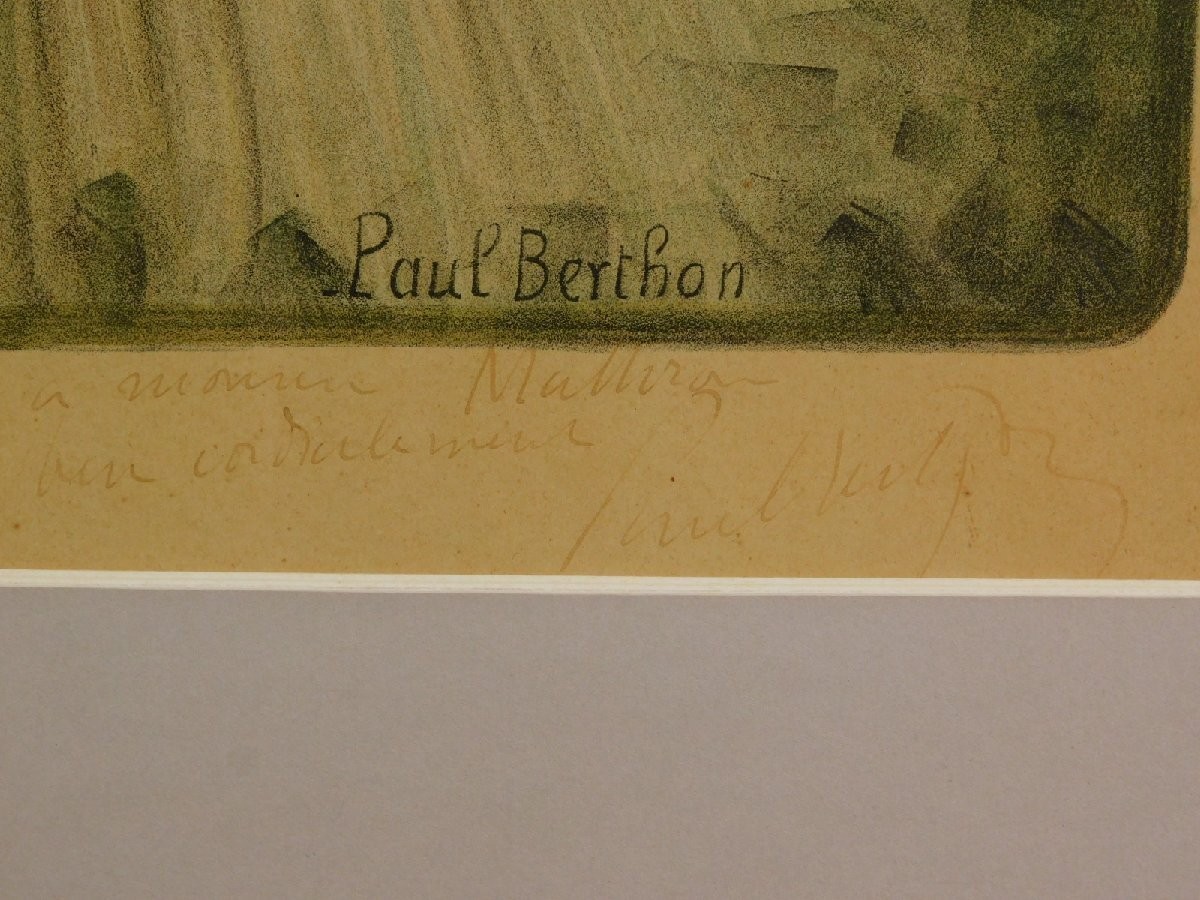 Paul Berthon
a monsieur Mathiron
bien cordialement
Paul Berthon